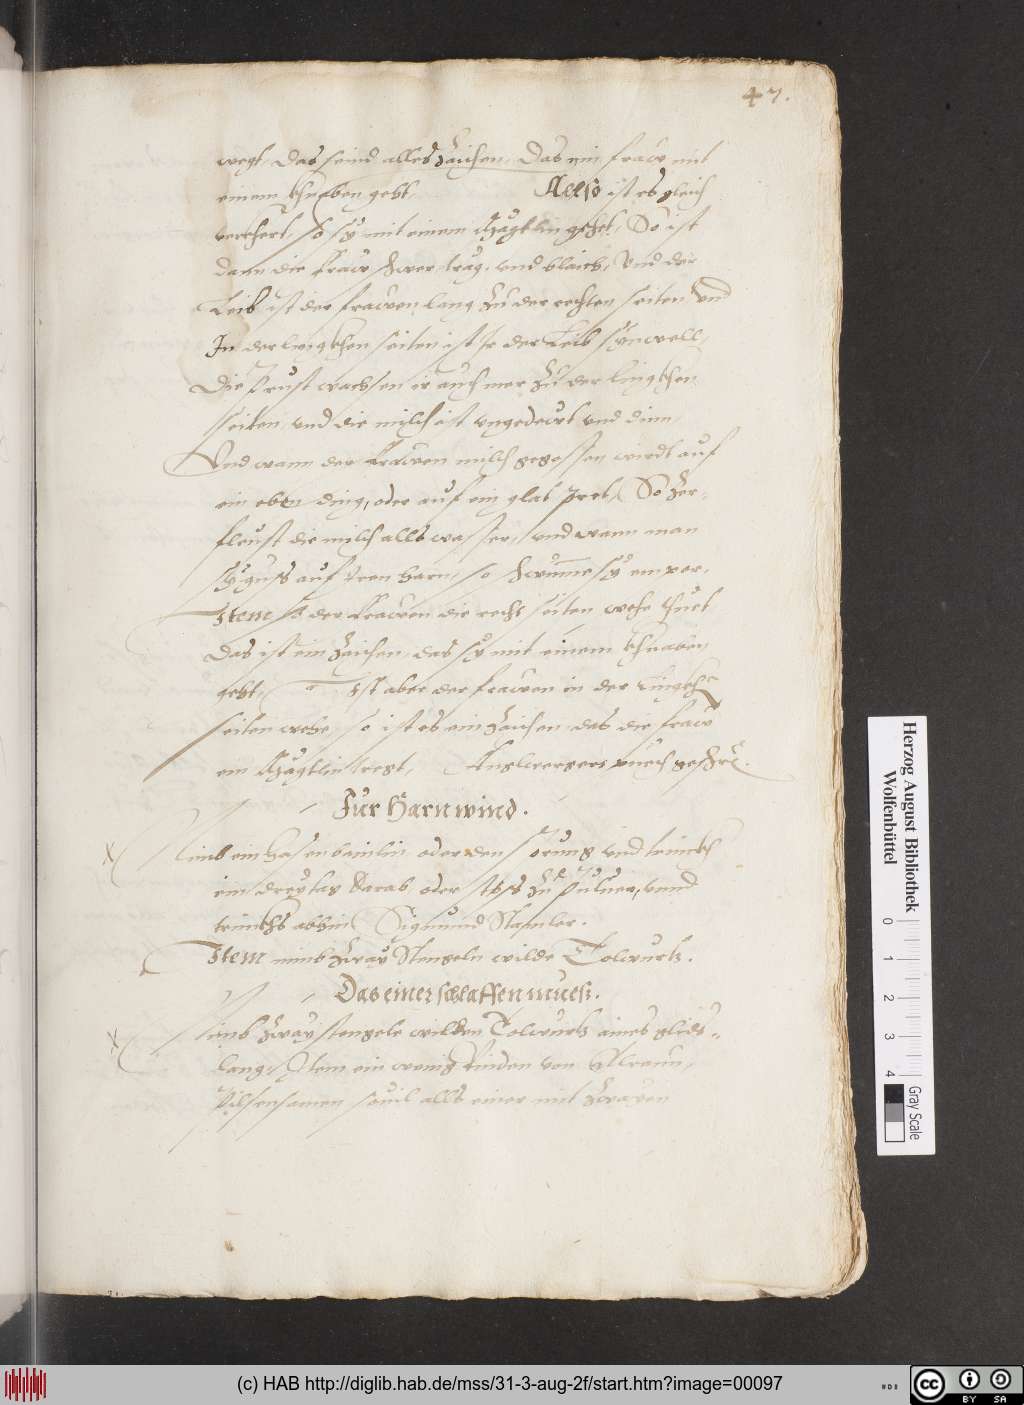 47.
wegt, das seind alles Zaichen, Das ein fraw mit
einem khnaben geht, Allso ist es gleich
verchert, so sy mit einem Mägtlin gehet, So ist
dann die fraw schwer, trag, und blaich, Und der
Leib ist der frawen lang zu der rechten seiten und
In der lingkhen seiten ist ir der Leib synwell,
Die Brust wachsen ir auch mer zu der lingkhen
seiten, und die milch ist und dinn,
Und wann der frawen milch gegossen wirdt auf
ein eben ding, oder auf ein glat pret, So Zer-
fleust die milch alls wasser, und wann man
sy guss auf iren harn, so schwimme sy empor,
Item so der frawen die recht seiten wehe thuet
Das ist ein Zaichen, das sy mit einem khnaben
geht, Ist aber der frawen in der Lingkhn
seiten wehe, so ist es ein Zaichen, das die fraw
ein Mägtlin tregt,
Für Harnwind.
Nimb ein Hasenbainlin oder den Sprung und
ein oder iss zu Puluer, unnd
trinckhs abhin Sigmund Stamler.
Item nimb Zway Stengeln wilde Tolwurtz.
Das einer schlaffen mues.
Nimb Zway stengele wilden Tolwurtz aines glids-
lang, Item ein wenig Rinden von Allraun,
Pilsensamen souil alls einer mit Zwayen
Herzog August Bibliothek
Wolfenbüttel
0 1 2 3 4
Gray Scale
(c) HAB http://diglib.hab.de/mss/31-3-aug-2f/start.htm?image=00097
cc BY SA